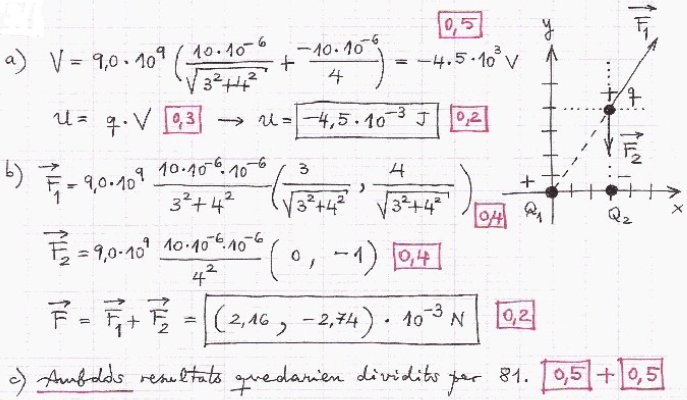 0,5
a) V = 9,0·10⁹ (10·10⁻⁶/√(3²+4²) + −10·10⁻⁶/4) = −4.5·10³ V
U = q·V 0,3 → U = −4,5·10⁻³ J 0,2
b) F⃗₁ = 9,0·10⁹ 10·10⁻⁶·10⁻⁶/(3²+4²) (3/√(3²+4²) , 4/√(3²+4²)) 0,4
F⃗₂ = 9,0·10⁹ 10·10⁻⁶·10⁻⁶/4² (0 , −1) 0,4
F⃗ = F⃗₁ + F⃗₂ = (2,16 , −2,74)·10⁻³ N 0,2
c) Ambdós resultats quedarien dividits per 81. 0,5 + 0,5
y F⃗₁
+ q
F⃗₂
+ −
Q₁ Q₂ x